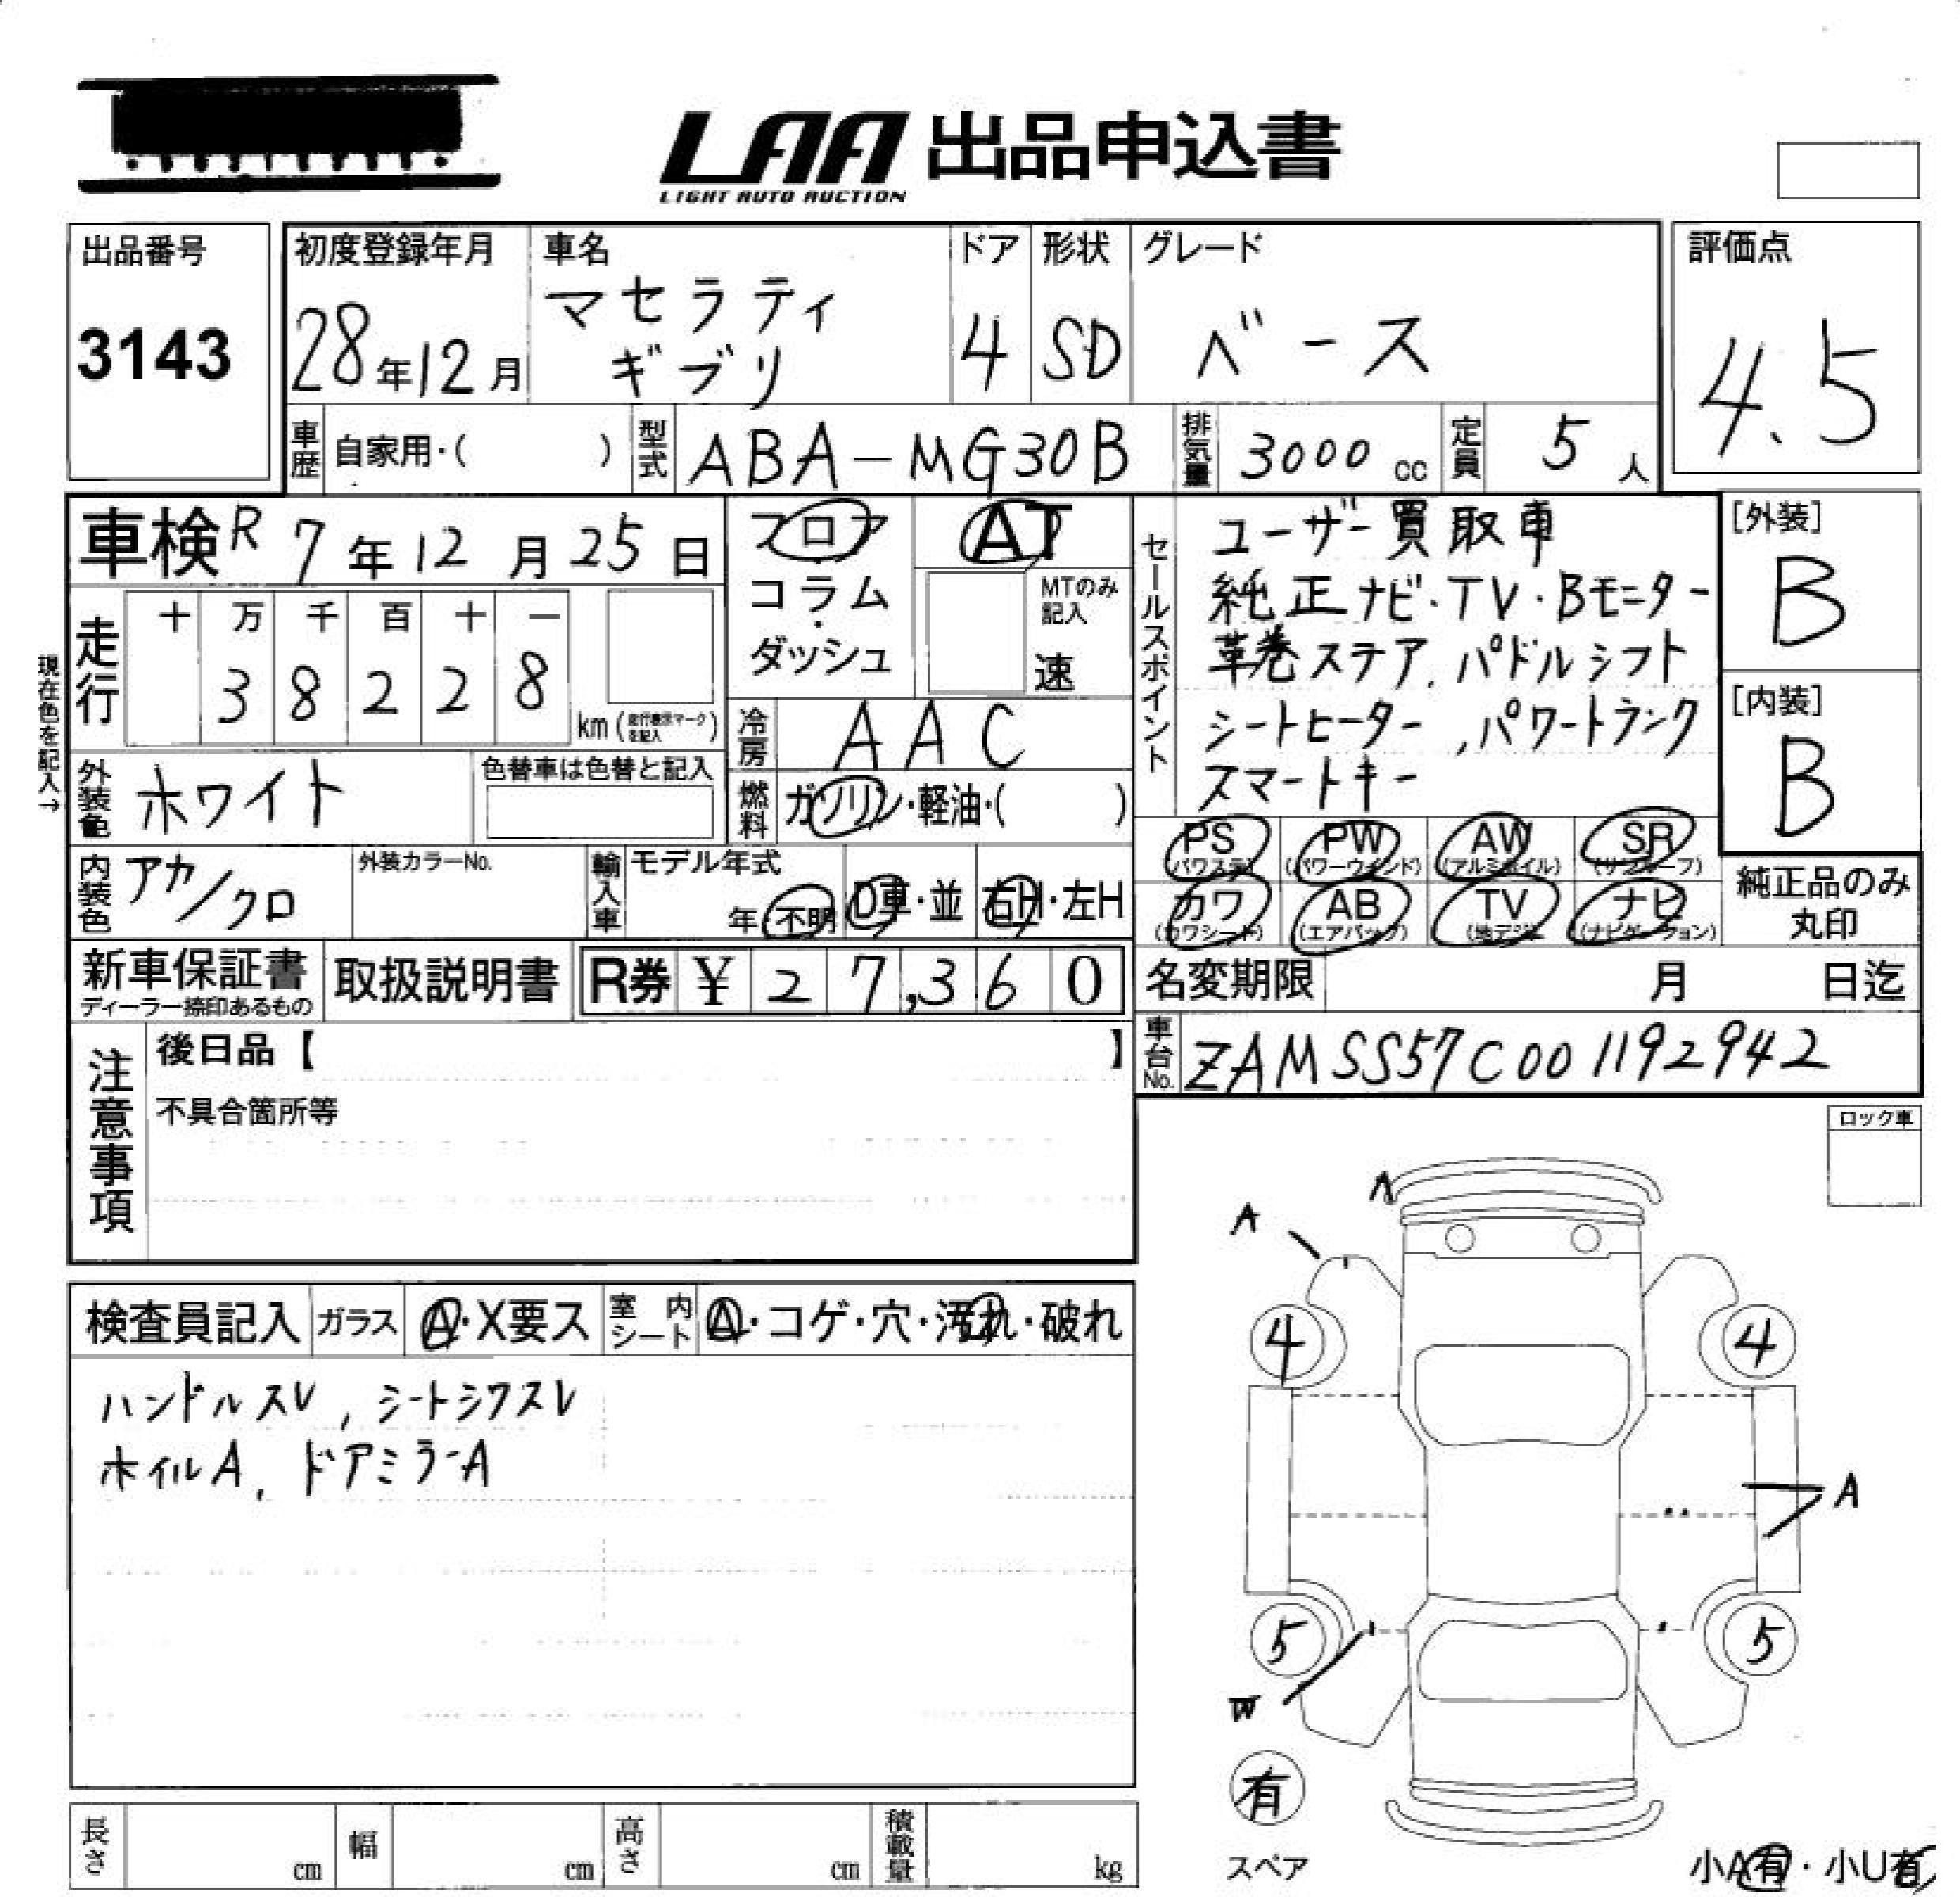 LAA 出品申込書
LIGHT AUTO AUCTION
出品番号
3143
初度登録年月
28年12月
車名
マセラティ
ギブリ
ドア
4
形状
SD
グレード
ベース
評価点
4.5
車歴 自家用・( )
型式 ABA-MG30B
排気量 3000 cc
定員 5 人
車検 R 7年12月25日
走行
十 万 千 百 十 一
3 8 2 2 8
km (走行表示マークを記入)
現在色を記入→
外装色 ホワイト
色替車は色替と記入
内装色 アカ/クロ
外装カラーNo.
輸入車 モデル年式
年・不明 D車・並 右H・左H
フロア
・
コラム
・
ダッシュ
AT
MTのみ記入
速
冷房 AAC
燃料 ガソリン・軽油・( )
セールスポイント
ユーザー買取車
純正ナビ・TV・Bモニター
革巻ステア, パドルシフト
シートヒーター, パワートランク
スマートキー
[外装]
B
[内装]
B
PS (パワステ) PW (パワーウインド) AW (アルミホイル) SR (サンルーフ)
カワ (カワシート) AB (エアバック) TV (地デジ) ナビ (ナビゲーション)
純正品のみ
丸印
新車保証書
ディーラー捺印あるもの
取扱説明書
R券 ¥ 27,360
名変期限 月 日迄
車台No. ZAMSS57C001192942
注意事項
後日品【 】
不具合箇所等
ロック車
検査員記入 ガラス A・X要ス 室内シート A・コゲ・穴・汚れ・破れ
ハンドルスレ, シートシワスレ
ホイルA, ドアミラーA
A
A
4 4
A
5 5
W
有
スペア
小A有・小U有
長さ cm 幅 cm 高さ cm 積載量 kg